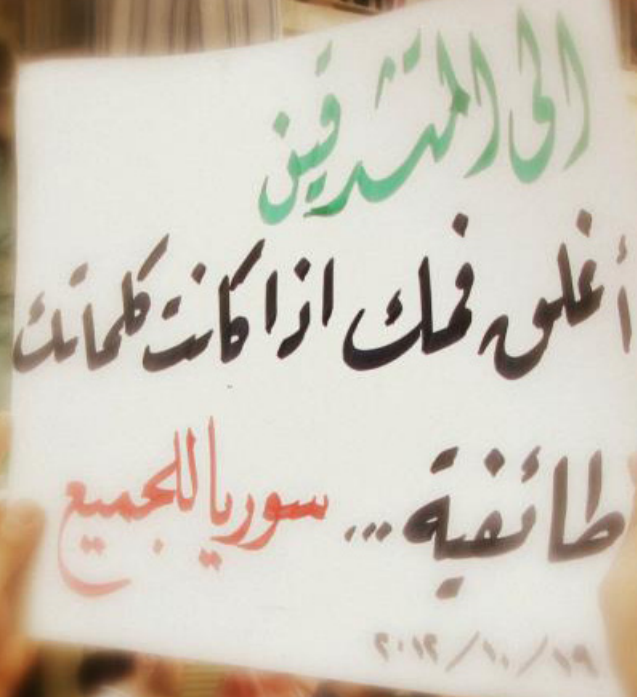 الى المتشدقين
أغلق فمك اذا كانت كلماتك
طائفية... سوريا للجميع
٢٠١٢/١٠/١٩